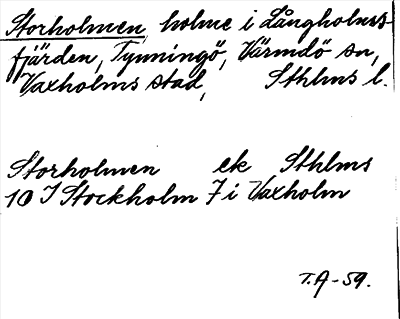 Storholmen, holme i Långholms-
fjärden, Tynningö, Värmdö sn,
Vaxholms stad, Sthlms l.
Storholmen ek Sthlms
10 I Stockholm 7 i Vaxholm
T.A-59.